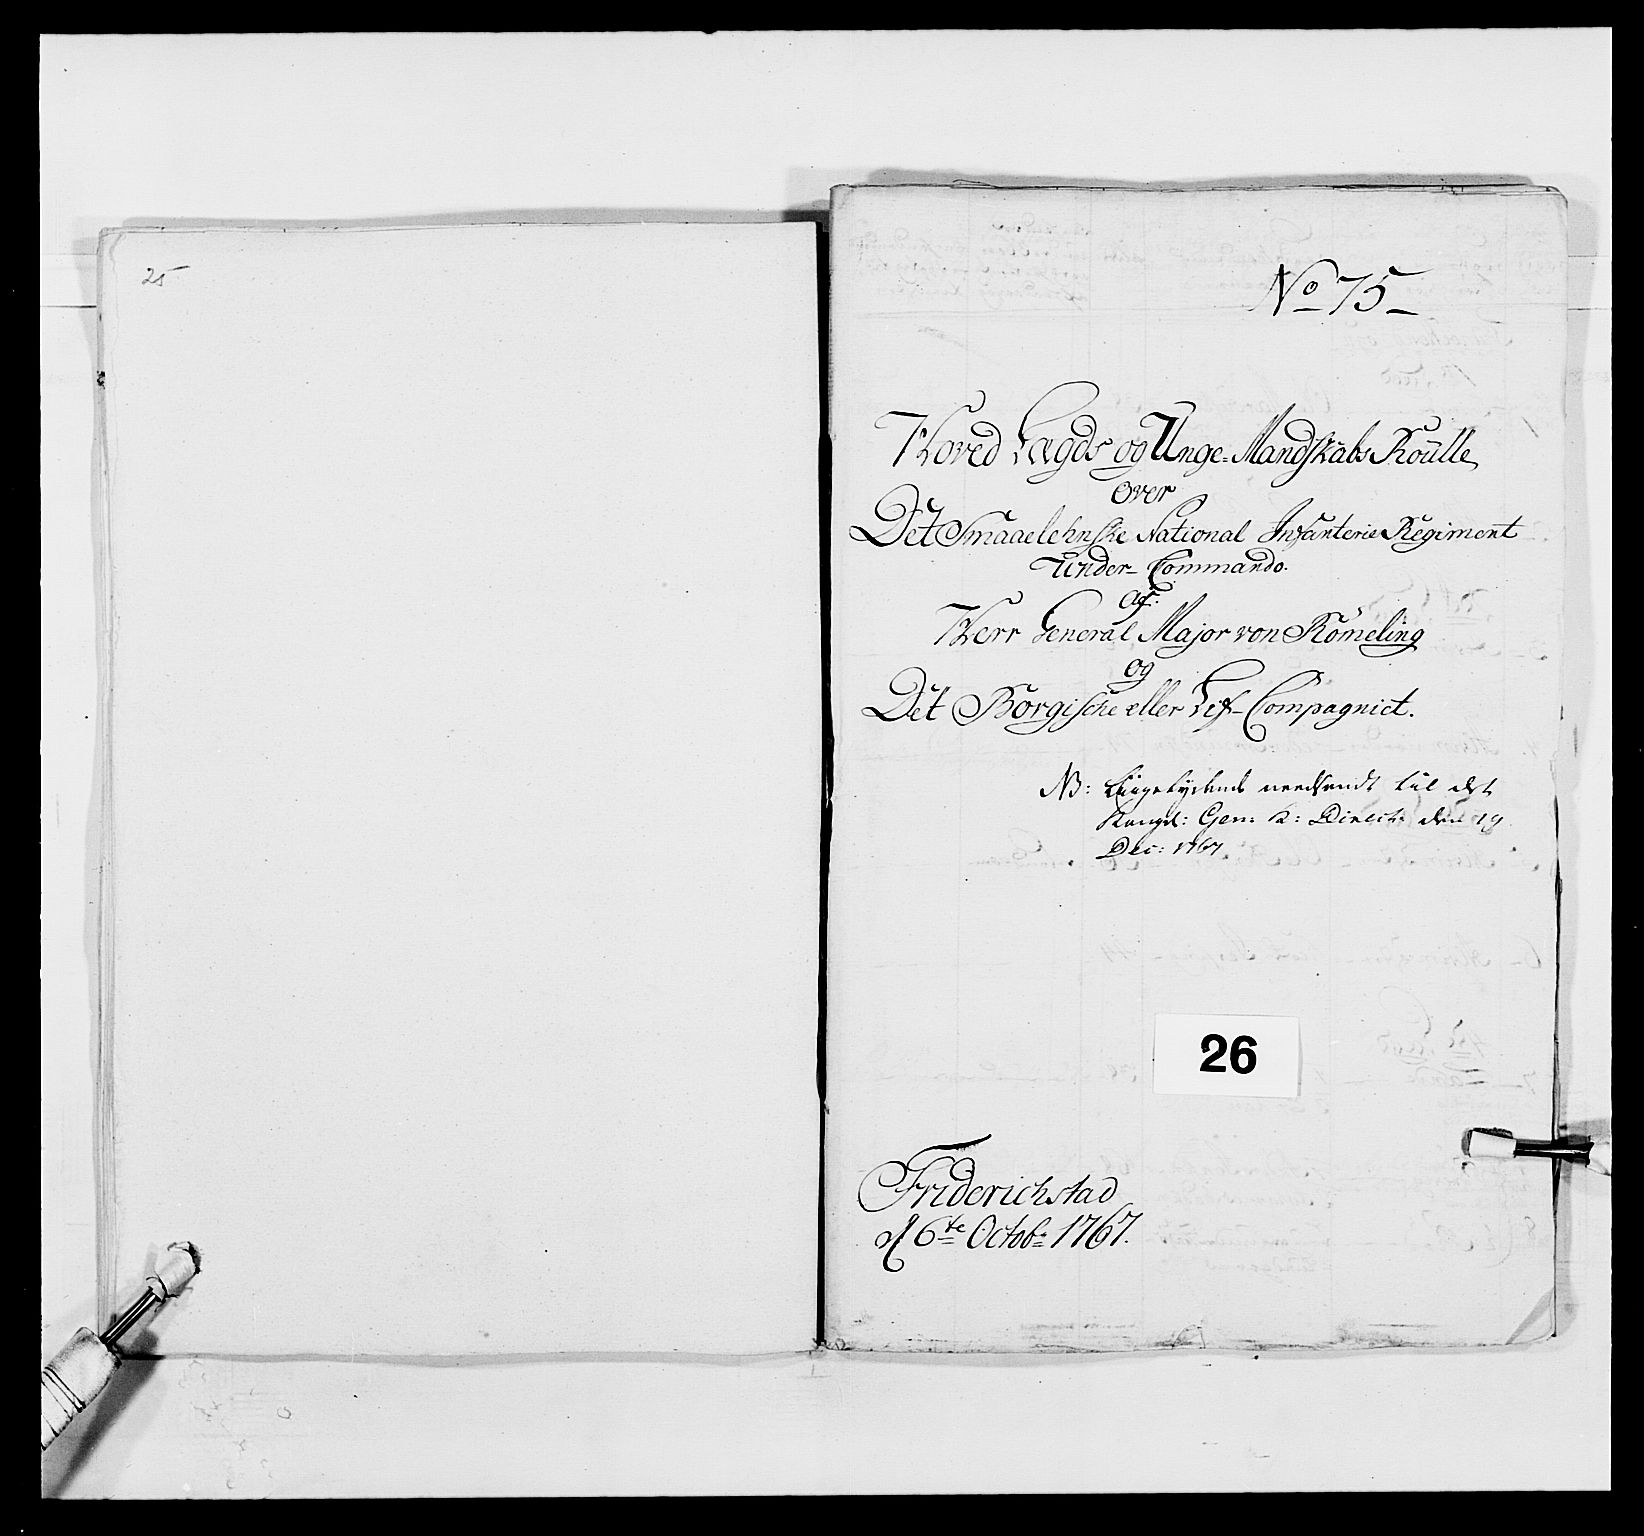 25
No 75
Hoved Lægds og Unge-Mandskabs Roulle
over
Det Smaaelehnske National Infanterie Regiment
Under Commando.
af:
Herr General Major von Römeling
og
Det Borgische eller Lif-Compagniet.
NB: Liigelydende needsendt til det
Kongel: Gen: K: Direct: den 19
Dec: 1767
26
Friderichstad
d 6te Octobr 1767.